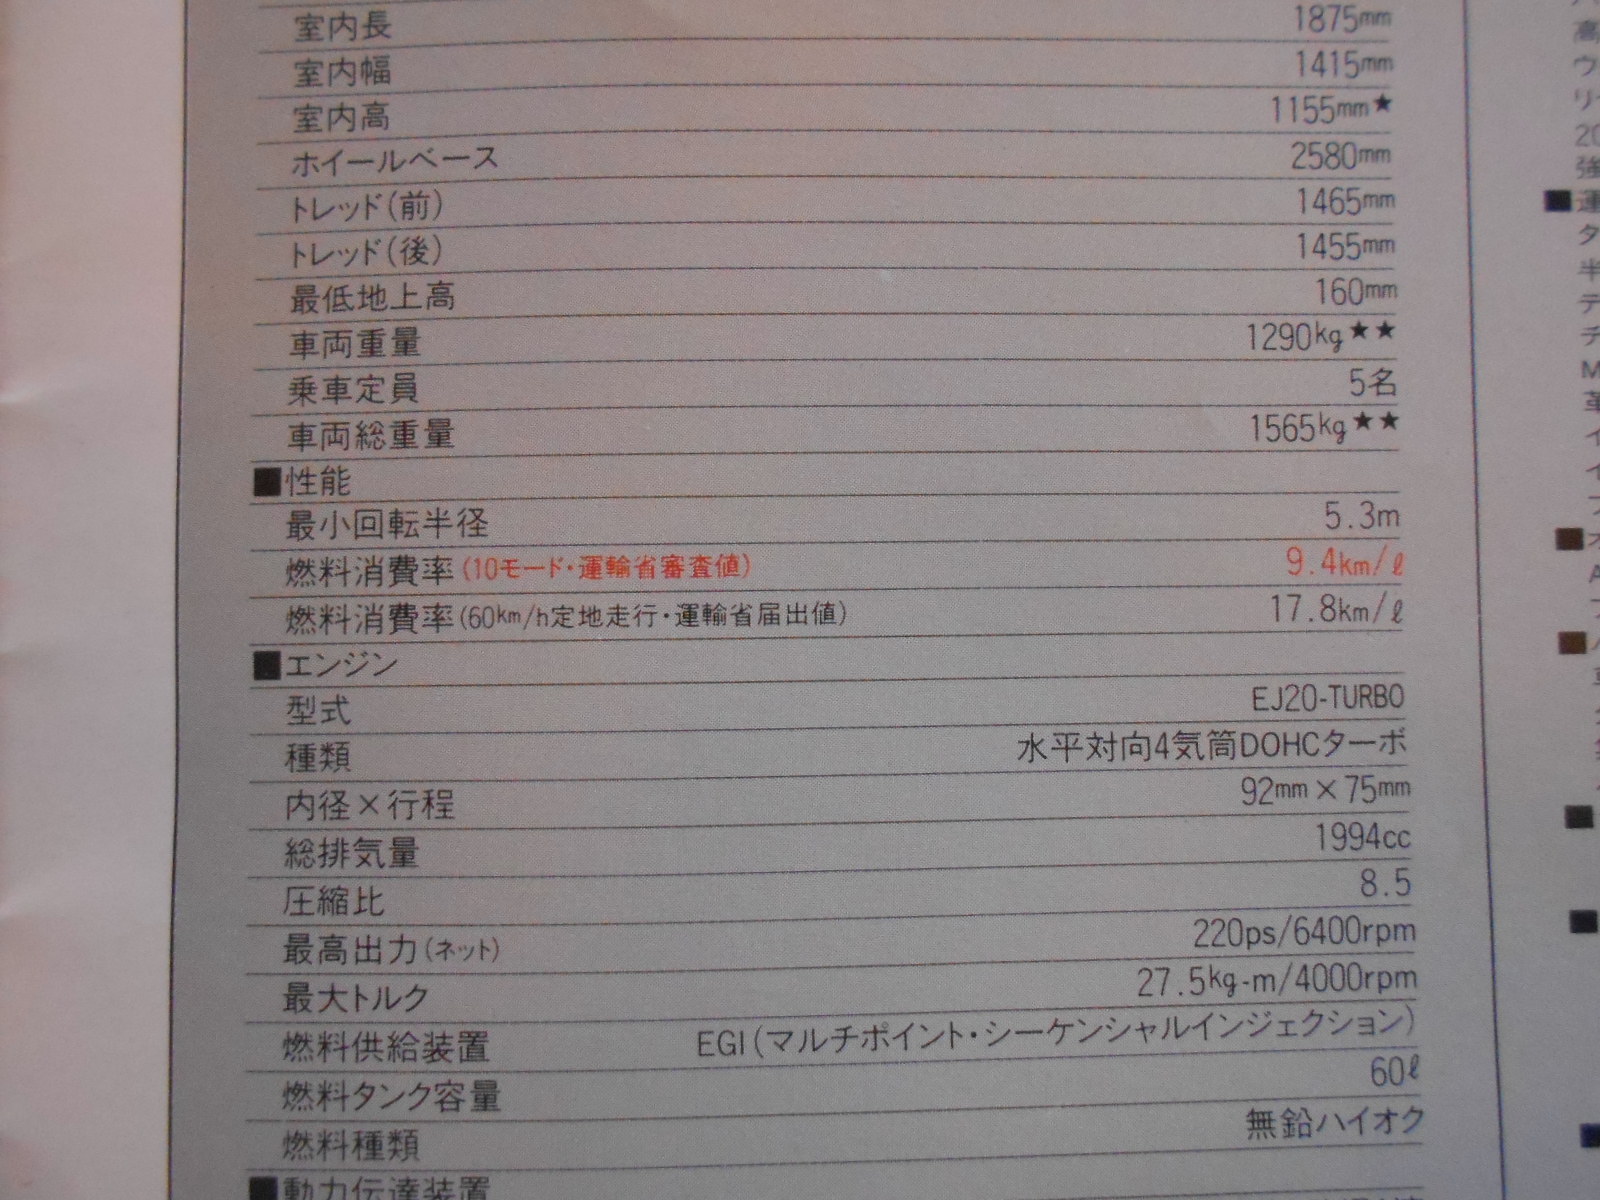 室内長 1875mm
室内幅 1415mm
室内高 1155mm★
ホイールベース 2580mm
トレッド(前) 1465mm
トレッド(後) 1455mm
最低地上高 160mm
車両重量 1290kg★★
乗車定員 5名
車両総重量 1565kg★★
■性能
最小回転半径 5.3m
燃料消費率(10モード・運輸省審査値) 9.4km/ℓ
燃料消費率(60km/h定地走行・運輸省届出値) 17.8km/ℓ
■エンジン
型式 EJ20-TURBO
種類 水平対向4気筒DOHCターボ
内径×行程 92mm×75mm
総排気量 1994cc
圧縮比 8.5
最高出力(ネット) 220ps/6400rpm
最大トルク 27.5kg-m/4000rpm
燃料供給装置 EGI(マルチポイント・シーケンシャルインジェクション)
燃料タンク容量 60ℓ
燃料種類 無鉛ハイオク
■動力伝達装置